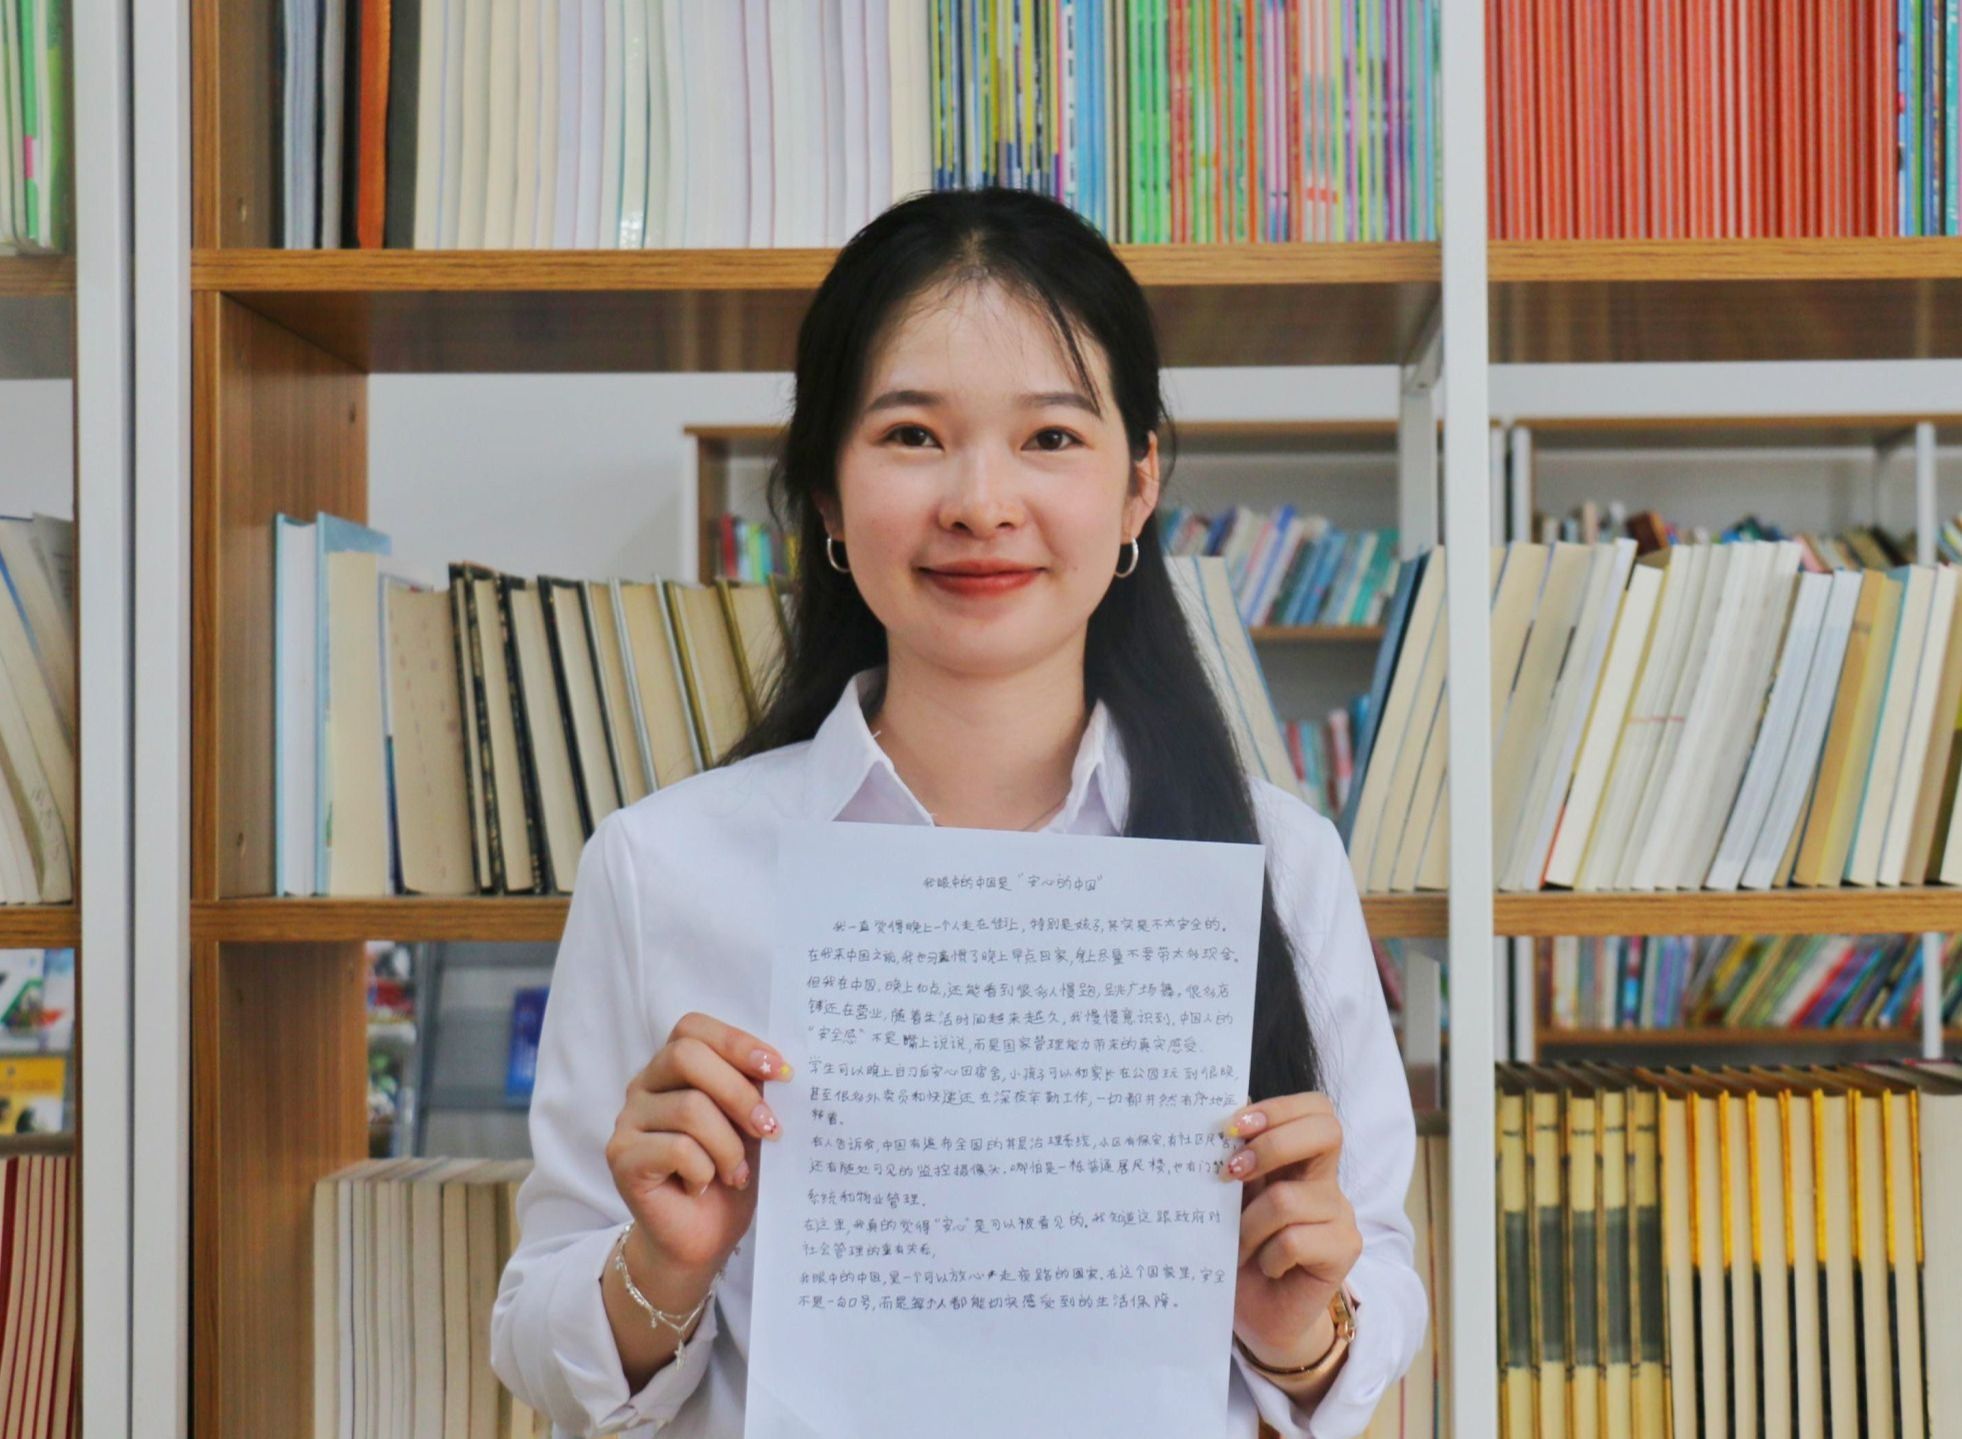 我眼中的中国是“安心的中国”
我一直觉得晚上一个人走在街上，特别是女孩子，其实是不太安全的。
在我来中国之前，我也习惯了晚上早点回家，身上尽量不要带太多现金。
但我在中国，晚上10点，还能看到很多人慢跑，跳广场舞。很多店
铺还在营业，随着生活时间越来越久，我慢慢意识到，中国人的
“安全感”不是嘴上说说，而是国家管理能力带来的真实感受。
学生可以晚上自习后安心回宿舍，小孩子可以和家长在公园玩到很晚，
甚至很多外卖员和快递还在深夜辛勤工作，一切都井然有序地运
转着。
有人告诉我，中国有遍布全国的基层治理系统，小区有保安，有社区民警，
还有随处可见的监控摄像头。哪怕是一栋普通居民楼，也有门禁
系统和物业管理。
在这里，我真的觉得“安心”是可以被看见的。我知道这跟政府对
社会管理的重有关系，
我眼中的中国，是一个可以放心走夜路的国家。在这个国家里，安全
不是一句口号，而是每个人都能切实感受到的生活保障。